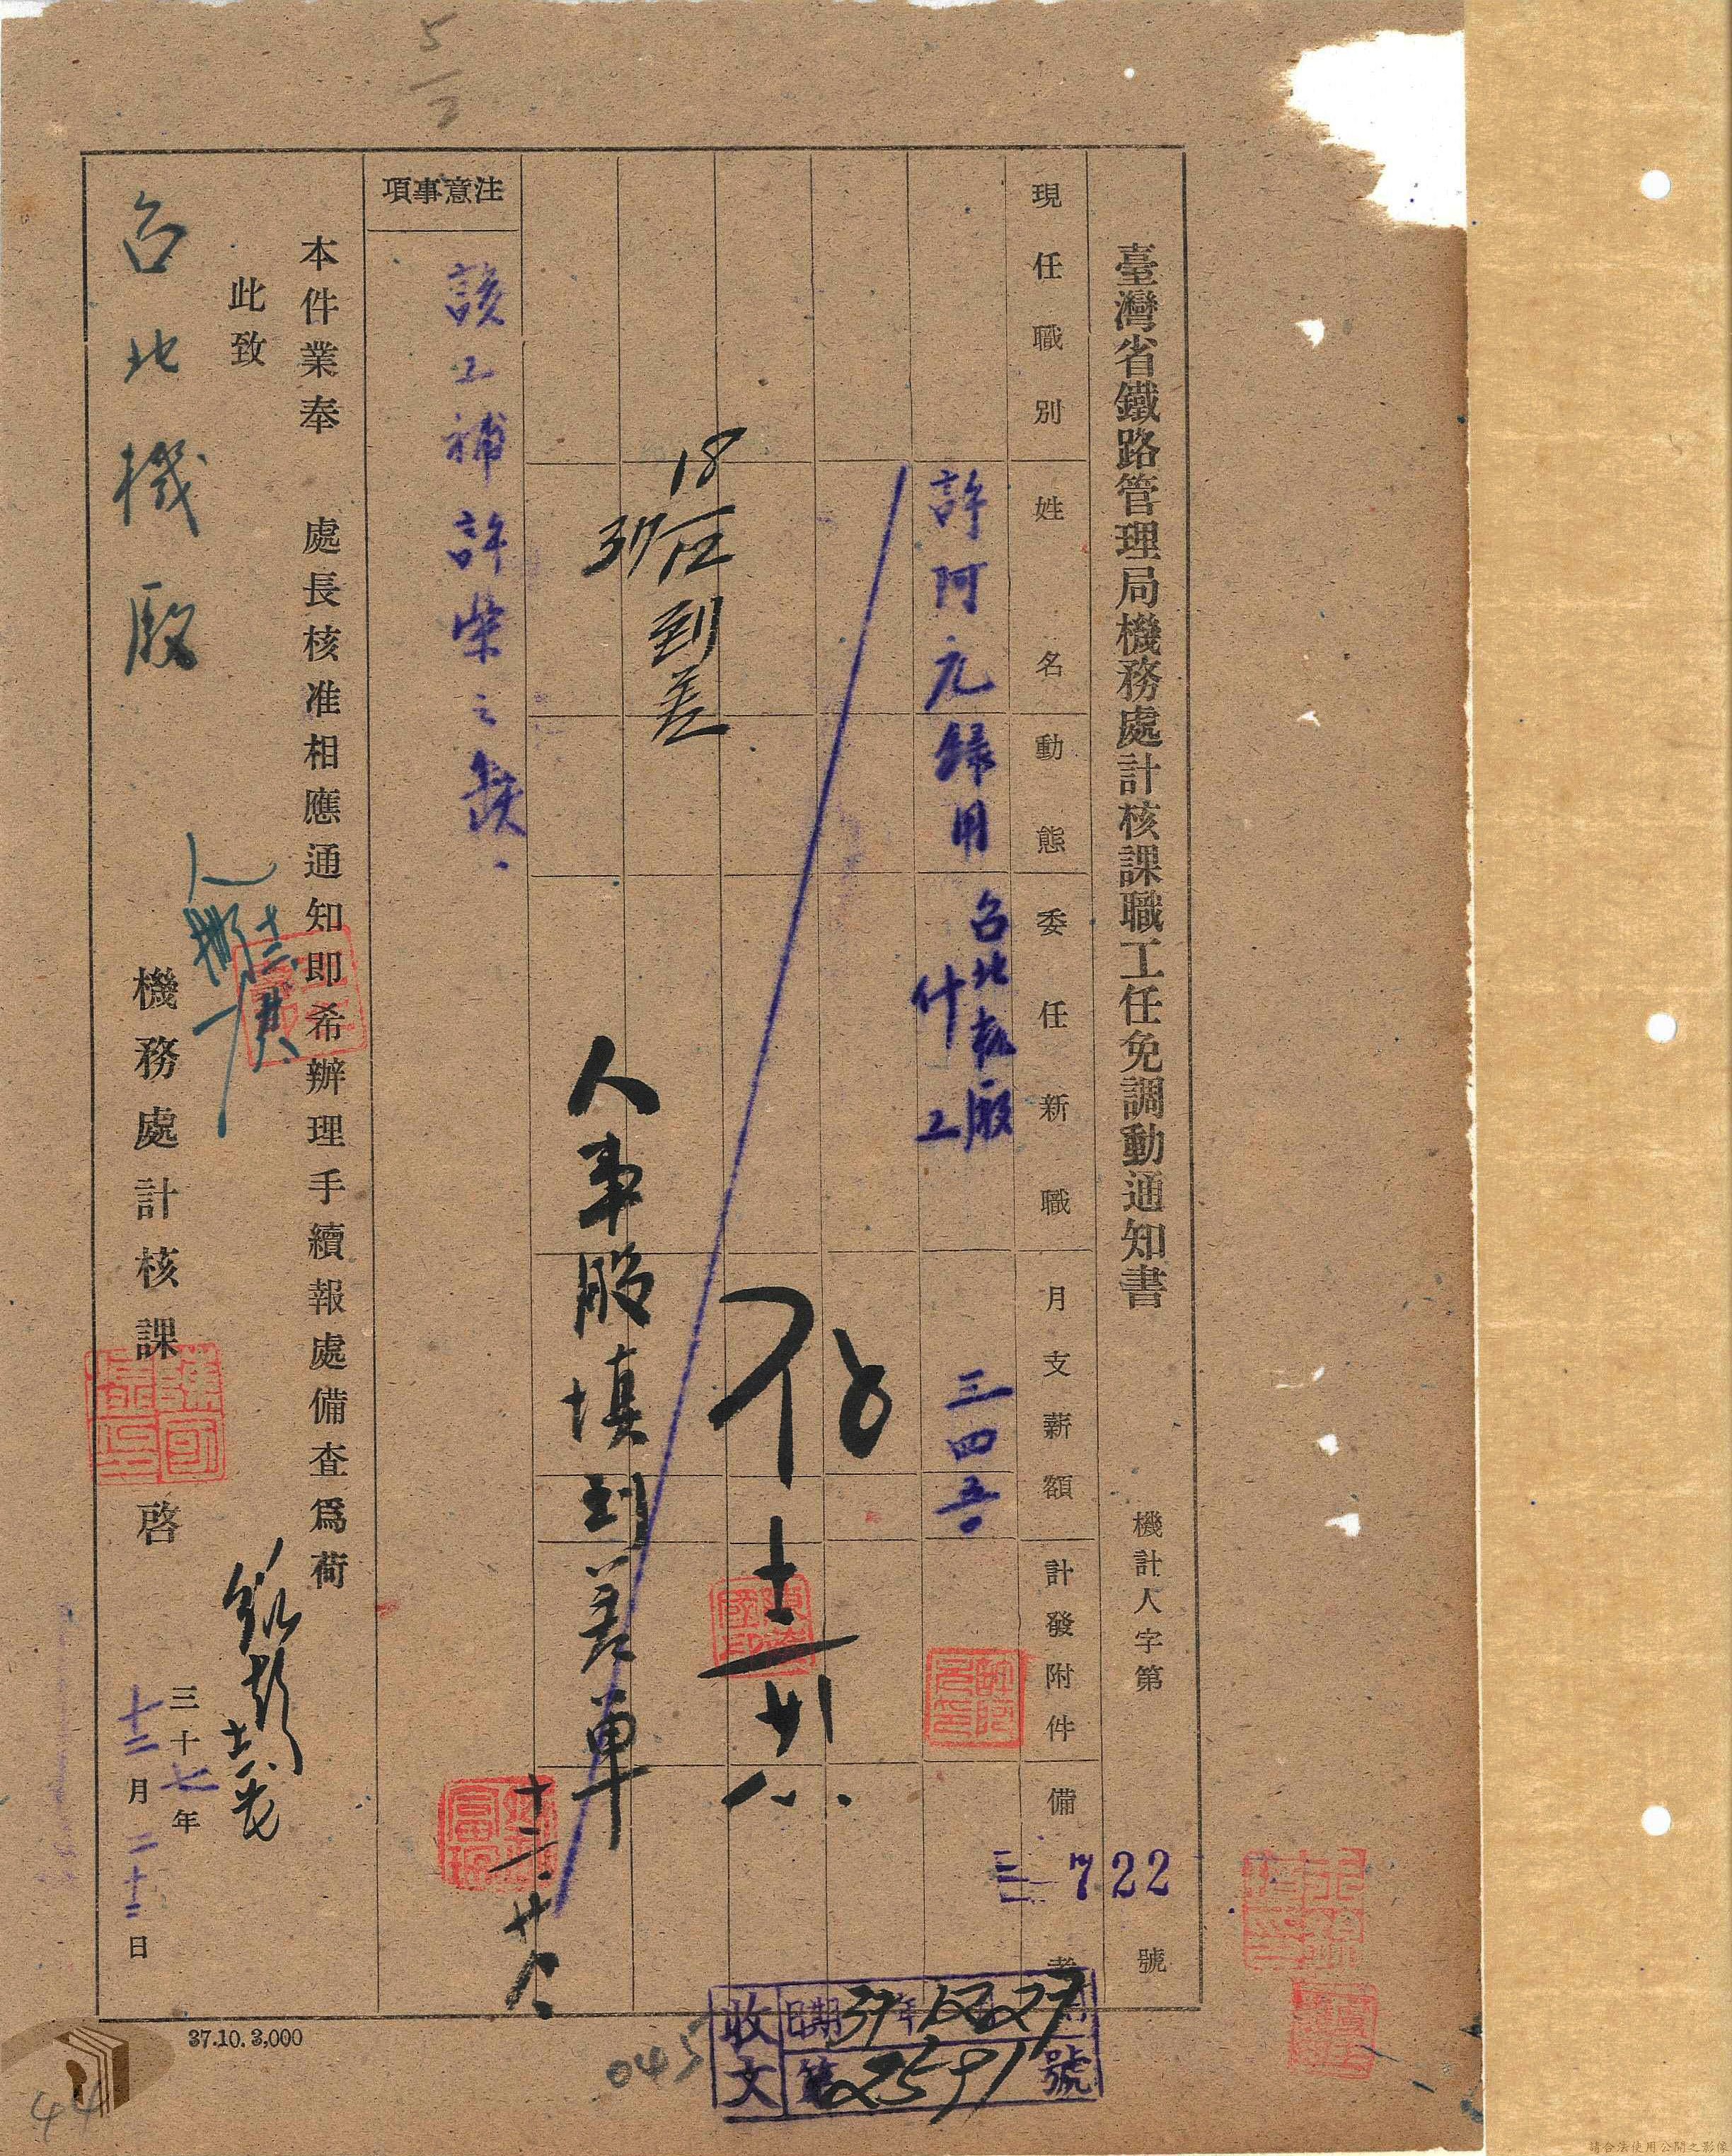 臺灣省鐵路管理局機務處計核課職工任免調動通知書
機計人字第 722 號
現任職別
姓名
動態
委任新職
月支薪額
計發附件
備考
許阿元
錄用
台北機廠
什工
三四吾
18/12
37
到差
人事股填到差單
十二
廿八
注意事項
該工補許柴之缺
本件業奉 處長核准相應通知即希辦理手續報處備查為荷
此致
台北機廠
機務處計核課 啓
三十七年
十二月二十二日
收文
日期 37年12月27日
第2591號
37.10.3,000
045
44
5/2
請合法使用公開之影像